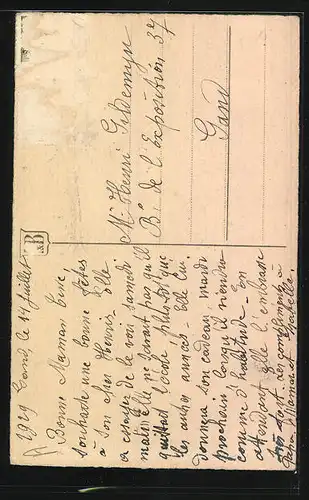 1919 Gand le 14 Juillet
Bonne Maman Line,
souhaite une bonne fêtes
à son cher Henri. Elle
a essayer de le voir samedi
mais Elle ne savait pas qu'il
quittait l'école plus tôt que
les autres années. Elle lui
donnera son cadeau mardi
prochain lorsqu'il viendra
comme d'habitude. En
attendant elle l'embrasse
compliments à
Papa, Maman et
Mr Henri
Bd de l'Exposition 37
Gand
B
&B